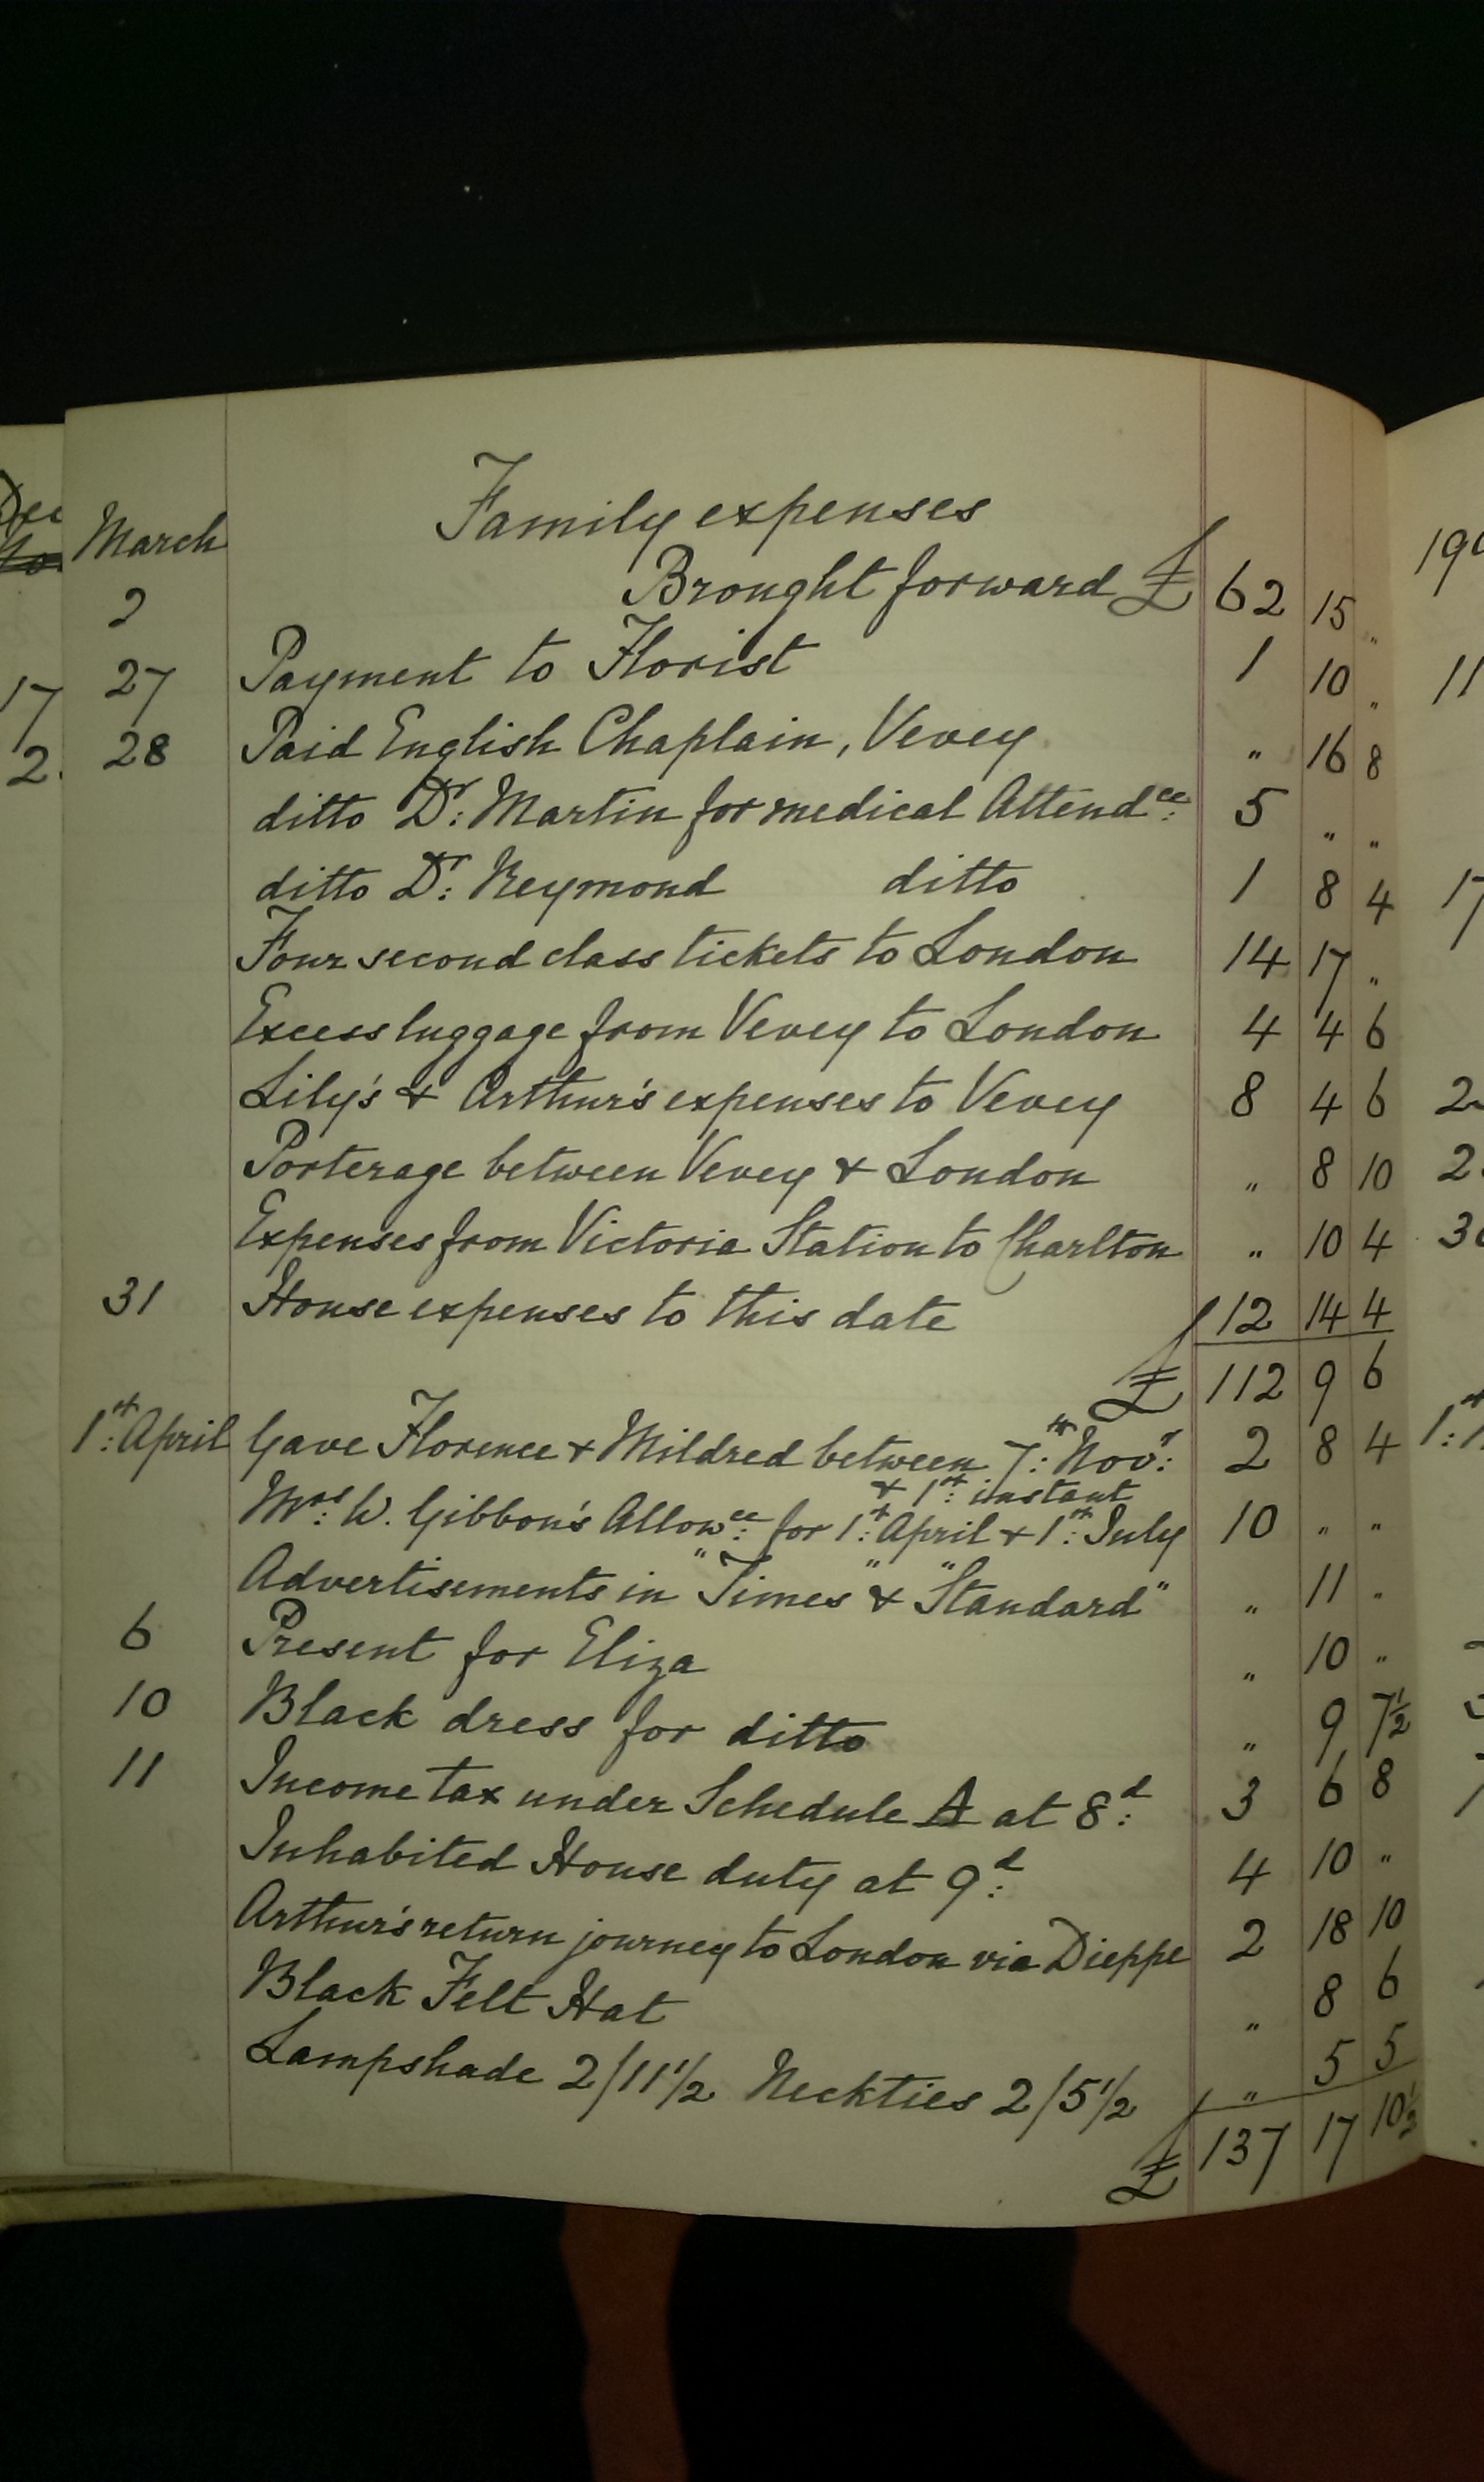 March
Family expenses
2 Brought forward £ 62 15 "
27 Payment to Florist 1 10 "
28 Paid English Chaplain, Vevey " 16 8
ditto Dr: Martin for medical Attendce: 5 " "
ditto Dr: Reymond ditto 1 8 4
Four second class tickets to London 14 17 "
Excess luggage from Vevey to London 4 4 6
Lily's & Arthur's expenses to Vevey 8 4 6
Porterage between Vevey & London " 8 10
Expenses from Victoria Station to Charlton " 10 4
31 House expenses to this date 12 14 4
£ 112 9 6
1st: April Gave Florence & Mildred between 7th: Novr: 2 8 4
& 1st: instant
Mrs: W. Gibbon's Allowce: for 1st: April & 1st: July 10 " "
Advertisements in "Times" & "Standard" " 11 "
6 Present for Eliza " 10 "
10 Black dress for ditto " 9 7½
11 Income tax under Schedule A at 8d: 3 6 8
Inhabited House duty at 9d: 4 10 "
Arthur's return journey to London via Dieppe 2 18 10
Black Felt Hat " 8 6
Lampshade 2/11½ Neckties 2/5½ " 5 5
£ 137 17 10½